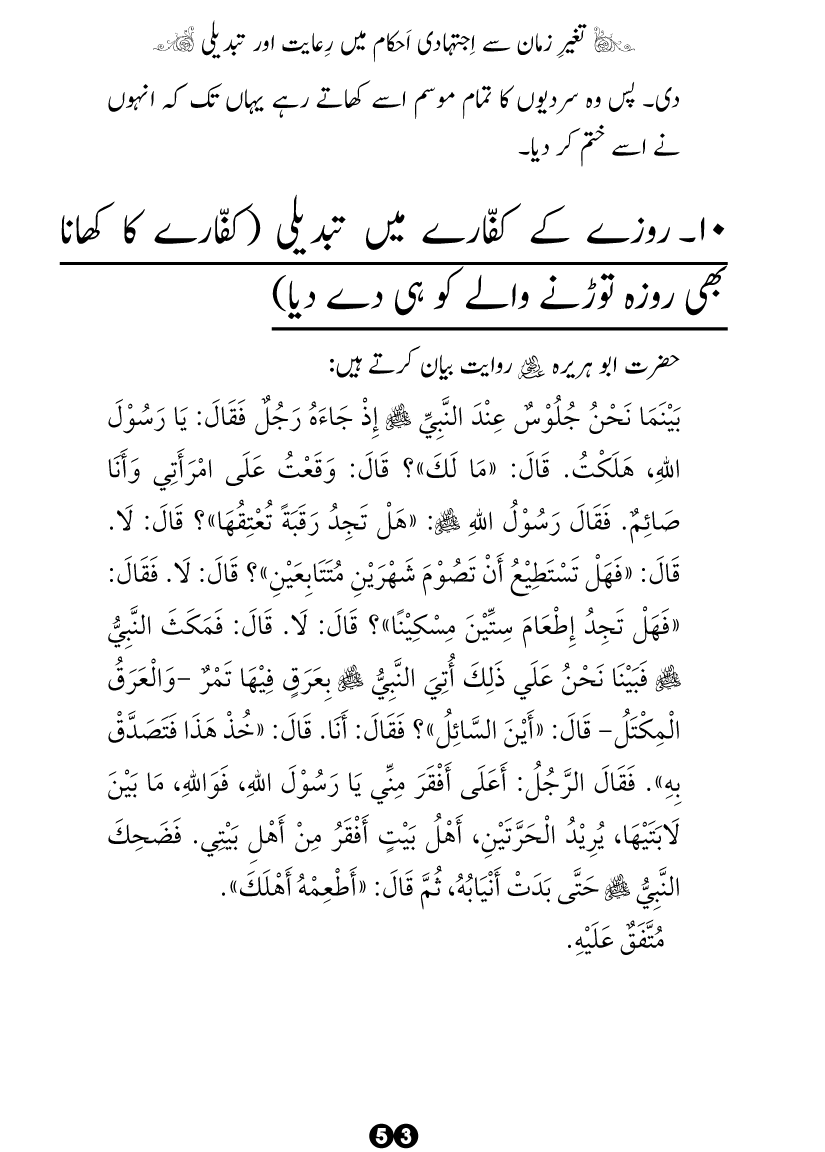 تغیرِ زمان سے اِجتہادی اَحکام میں رِعایت اور تبدیلی
دی۔ پس وہ سردیوں کا تمام موسم اسے کھاتے رہے یہاں تک کہ انہوں
نے اسے ختم کر دیا۔
۱۰۔ روزے کے کفّارے میں تبدیلی (کفّارے کا کھانا
بھی روزہ توڑنے والے کو ہی دے دیا)
حضرت ابو ہریرہ رضی اللہ عنہ روایت بیان کرتے ہیں:
بَيْنَمَا نَحْنُ جُلُوْسٌ عِنْدَ النَّبِيِّ ﷺ إِذْ جَاءَهُ رَجُلٌ فَقَالَ: يَا رَسُوْلَ
اللهِ، هَلَكْتُ. قَالَ: «مَا لَكَ»؟ قَالَ: وَقَعْتُ عَلَى امْرَأَتِي وَأَنَا
صَائِمٌ. فَقَالَ رَسُوْلُ اللهِ ﷺ: «هَلْ تَجِدُ رَقَبَةً تُعْتِقُهَا»؟ قَالَ: لَا.
قَالَ: «فَهَلْ تَسْتَطِيْعُ أَنْ تَصُوْمَ شَهْرَيْنِ مُتَتَابِعَيْنِ»؟ قَالَ: لَا. فَقَالَ:
«فَهَلْ تَجِدُ إِطْعَامَ سِتِّيْنَ مِسْكِيْنًا»؟ قَالَ: لَا. قَالَ: فَمَكَثَ النَّبِيُّ
ﷺ فَبَيْنَا نَحْنُ عَلَي ذَلِكَ أُتِيَ النَّبِيُّ ﷺ بِعَرَقٍ فِيْهَا تَمْرٌ -وَالْعَرَقُ
الْمِكْتَلُ- قَالَ: «أَيْنَ السَّائِلُ»؟ فَقَالَ: أَنَا. قَالَ: «خُذْ هَذَا فَتَصَدَّقْ
بِهِ». فَقَالَ الرَّجُلُ: أَعَلَى أَفْقَرَ مِنِّي يَا رَسُوْلَ اللهِ، فَوَاللهِ، مَا بَيْنَ
لَابَتَيْهَا، يُرِيْدُ الْحَرَّتَيْنِ، أَهْلُ بَيْتٍ أَفْقَرُ مِنْ أَهْلِ بَيْتِي. فَضَحِكَ
النَّبِيُّ ﷺ حَتَّى بَدَتْ أَنْيَابُهُ، ثُمَّ قَالَ: «أَطْعِمْهُ أَهْلَكَ».
مُتَّفَقٌ عَلَيْهِ.
53